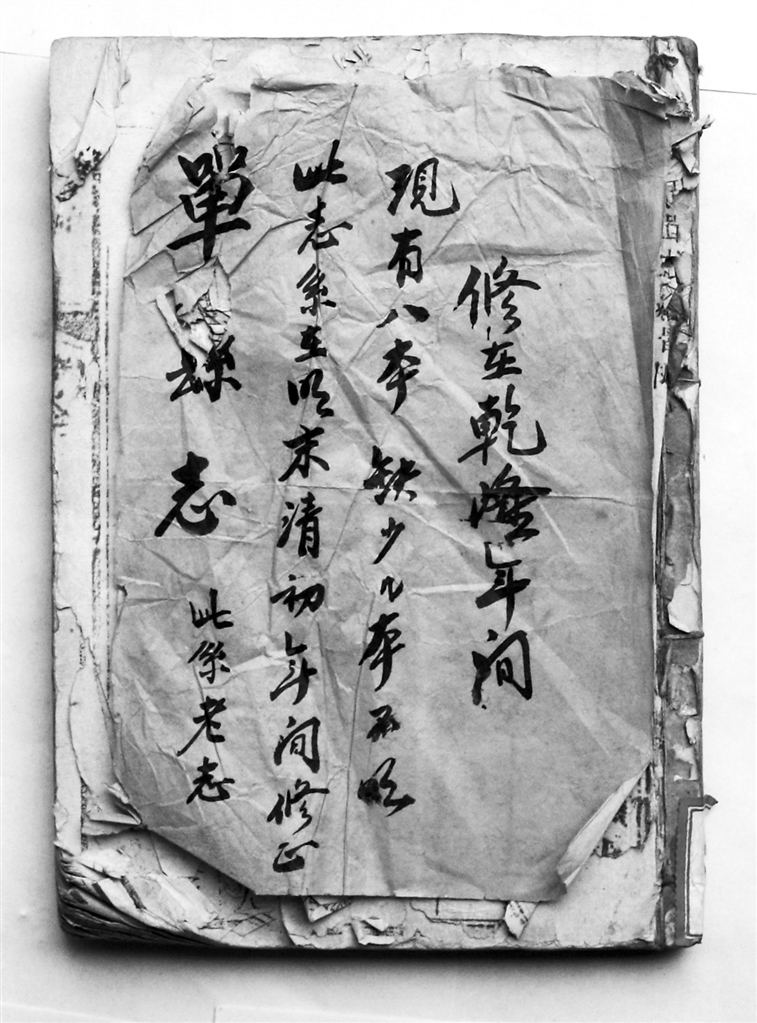 單縣志 此系老志
此志系在明末清初年间修正
現有八本 缺少几本不明
修在乾隆年间